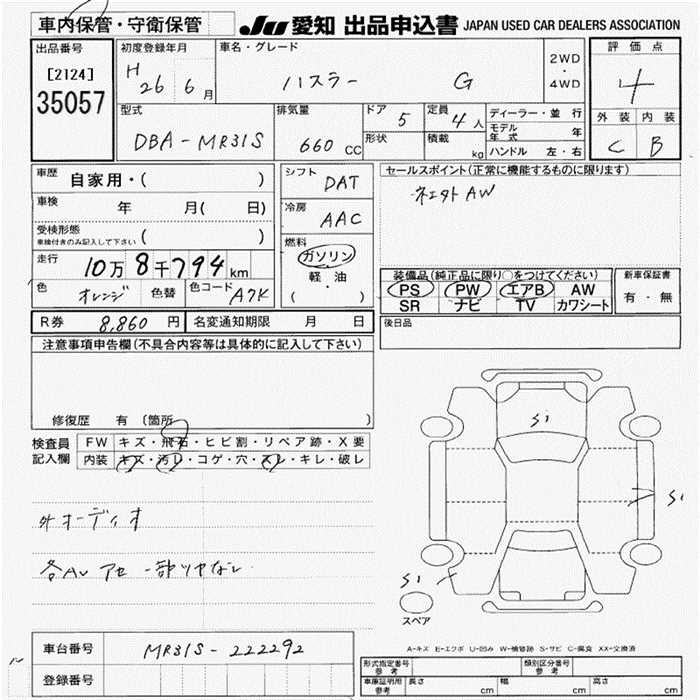 車内保管・守衛保管
JU 愛知 出品申込書 JAPAN USED CAR DEALERS ASSOCIATION
出品番号
[2124]
35057
初度登録年月
H 26 6 月
車名・グレード
ハスラー G
2WD
・
4WD
評価点
4
外装 内装
C B
型式
DBA-MR31S
排気量
660 CC
ドア 5
形状
定員 4 人
積載 kg
ディーラー・並 行
モデル年式 年
ハンドル 左・右
車歴 自家用・( )
車検 年 月( 日)
受検形態
車検付きのみ記入して下さい ( )
走行 10万8千794 km
色 オレンジ 色替 色コード A7K
シフト DAT
冷房 AAC
燃料
ガソリン
軽・油
( )
セールスポイント(正常に機能するものに限ります)
AW
装備品(純正品に限り○をつけてください)
PS PW エアB AW
SR ナビ TV カワシート
新車保証書
有・無
R券 8,860 円 名変通知期限 月 日
後日品
注意事項申告欄(不具合内容等は具体的に記入して下さい)
修復歴 有 (箇所 )
検査員記入欄
FW キズ・飛石・ヒビ割・リペア跡・X要
内装 キズ・汚レ・コゲ・穴・スレ・キレ・破レ
外オーディオ
S1
S1
S1
スペア
A-キズ E-エクボ U-凹み W-補修跡 S-サビ C-腐食 XX-交換済
車台番号 MR31S-222292
登録番号
形式指定番号 参考
類別区分番号 参考
車庫証明用 参考 長さ cm 幅 cm 高さ cm